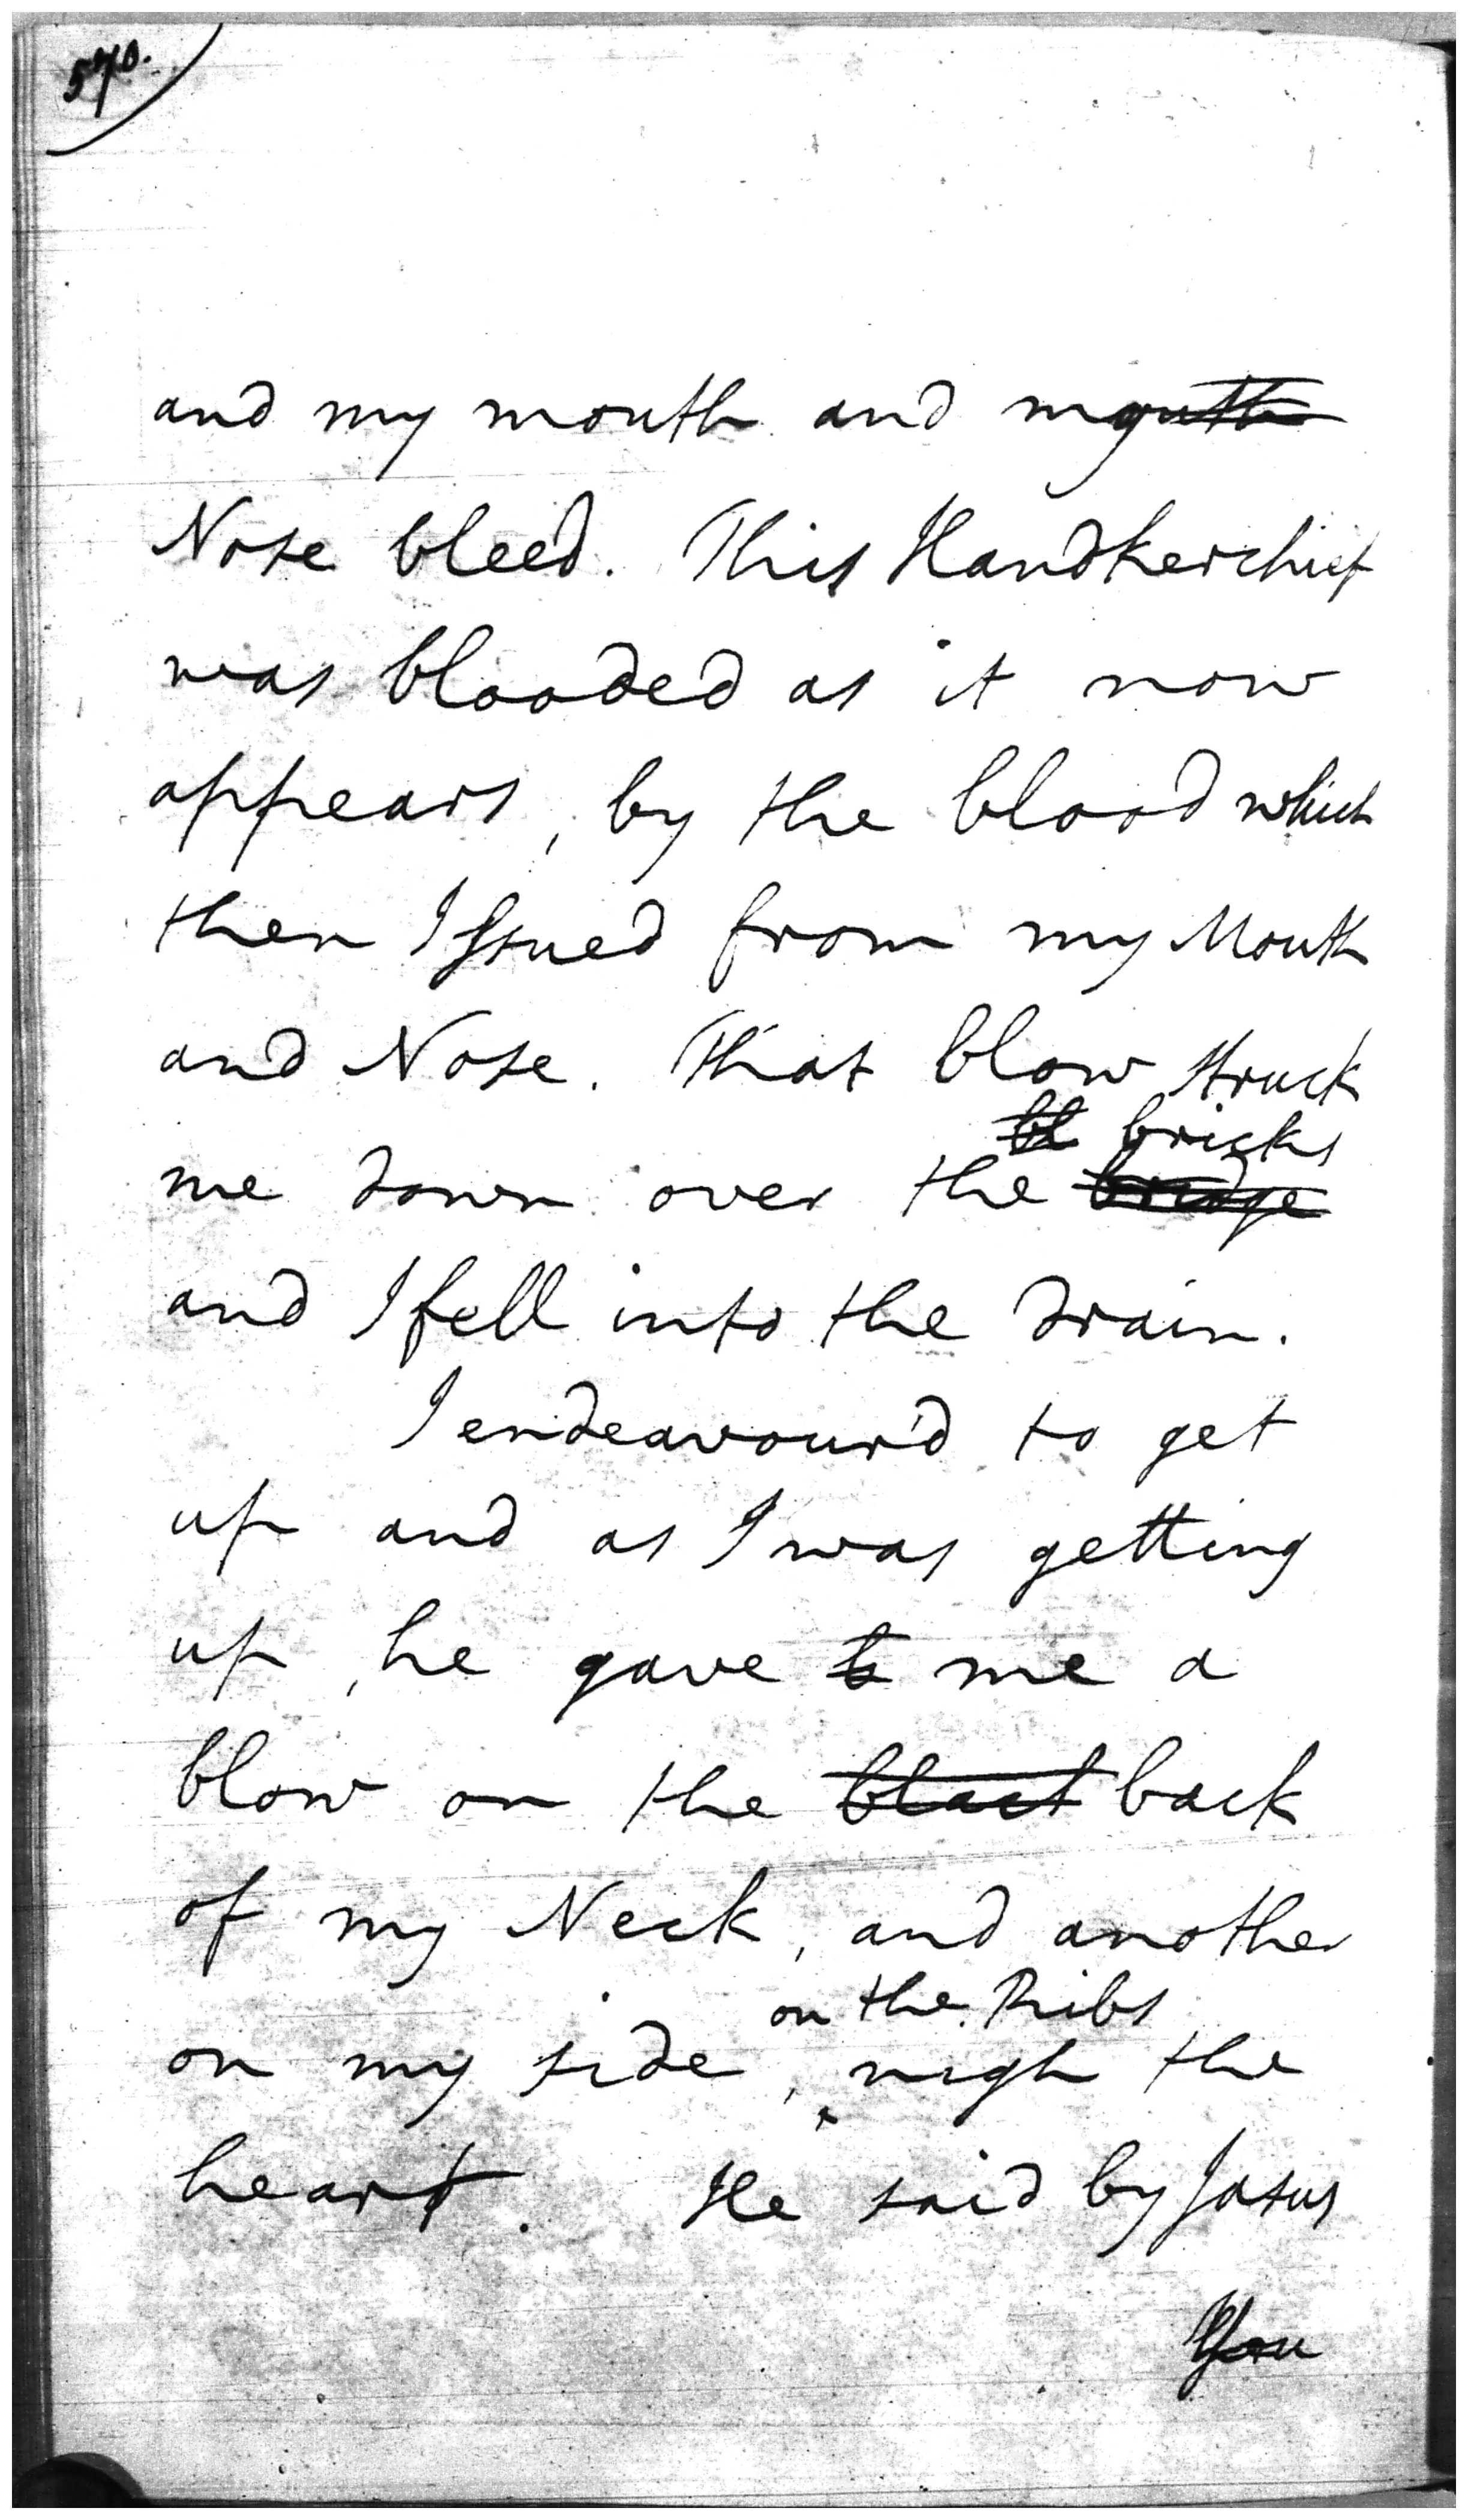 570.
and my mouth and mouth
Nose bleed. This Handkerchief
was blooded as it now
appears, by the blood which
then Issued from my Mouth
and Nose. That blow struck
bl bricks
me down over the bridge
and I fell into the drain.
I endeavour'd to get
up and as I was getting
up, he gave to me a
blow on the blact back
of my Neck, and another
on the Ribs
on my side, nigh the
heart. He said by Jesus
You